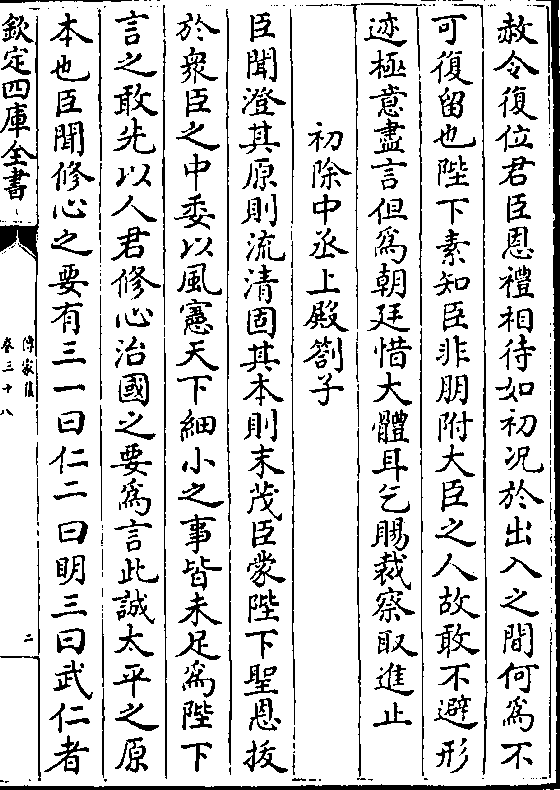 赦令復位君臣恩禮相待如初况於出入之間何爲不
可復留也陛下素知臣非朋附大臣之人故敢不避形
迹極意盡言但爲朝廷惜大體耳乞賜裁察取進止
初除中丞上殿劄子
臣聞澄其原則流清固其本則末茂臣蒙陛下聖恩拔
於衆臣之中委以風憲天下細小之事皆未足爲陛下
言之敢先以人君修心治國之要爲言此誠太平之原
本也臣聞修心之要有三一曰仁二曰明三曰武仁者
欽定四庫全書
傳家集
卷三十八
二